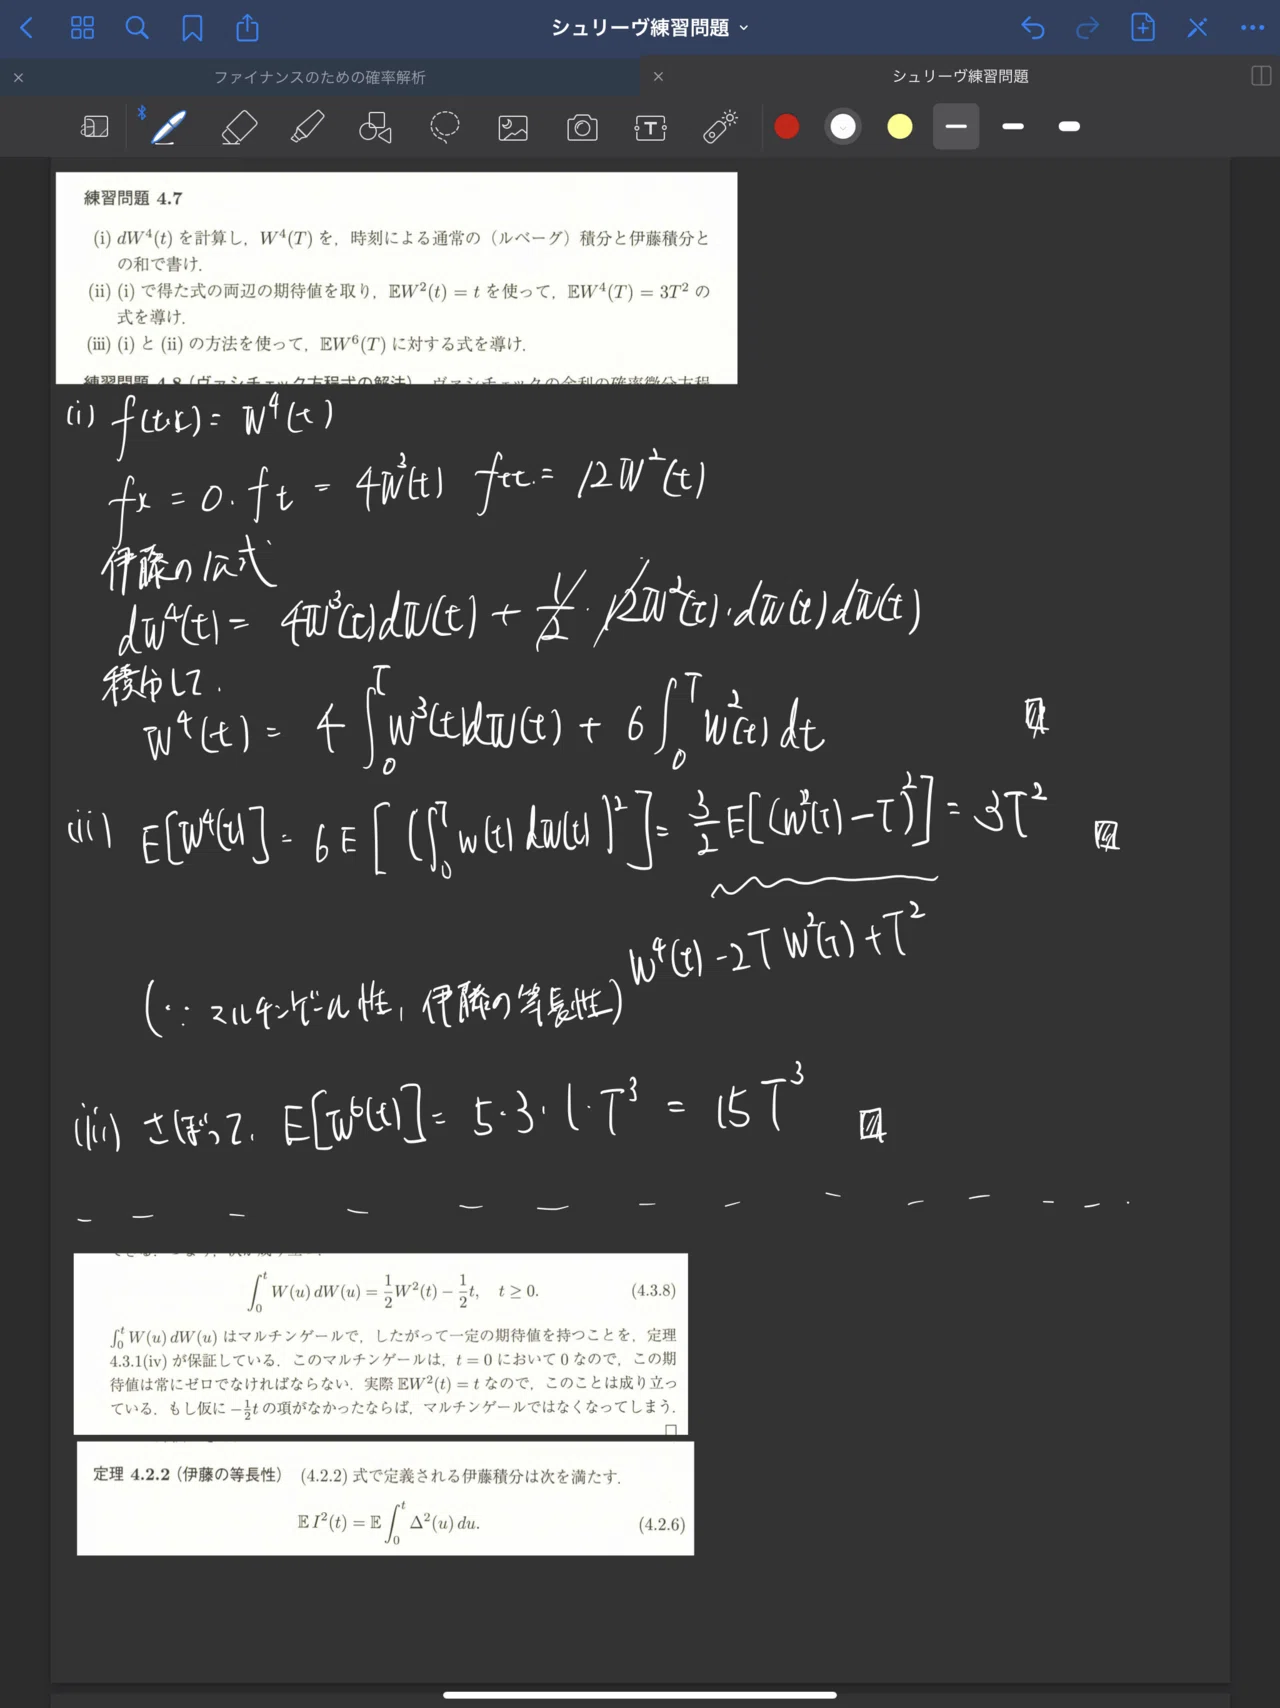 シュリーヴ練習問題
ファイナンスのための確率解析
シュリーヴ練習問題
練習問題 4.7
(i) dW⁴(t) を計算し, W⁴(T) を, 時刻による通常の（ルベーグ）積分と伊藤積分と
の和で書け.
(ii) (i) で得た式の両辺の期待値を取り, 𝔼W²(t) = t を使って, 𝔼W⁴(T) = 3T² の
式を導け.
(iii) (i) と (ii) の方法を使って, 𝔼W⁶(T) に対する式を導け.
(i) f(t,x) = W⁴(t)
fx = 0. ft = 4W³(t) ftt = 12W²(t)
伊藤の公式
dW⁴(t) = 4W³(t)dW(t) + 1/2 · 12W²(t)·dW(t)dW(t)
積分して.
W⁴(t) = 4∫₀ᵀ W³(t)dW(t) + 6∫₀ᵀ W²(t)dt
(ii) E[W⁴(t)] = 6E[(∫₀ᵀ W(t)dW(t))²] = 3/2 E[(W²(T)-T)²] = 3T²
W⁴(t) - 2TW²(T) + T²
(∵ マルチンゲール性, 伊藤の等長性)
(iii) さぼって, E[W⁶(t)] = 5·3·1·T³ = 15T³
∫₀ᵗ W(u) dW(u) = 1/2 W²(t) − 1/2 t, t ≥ 0. (4.3.8)
∫₀ᵗ W(u) dW(u) はマルチンゲールで, したがって一定の期待値を持つことを, 定理
4.3.1(iv) が保証している. このマルチンゲールは, t = 0 において 0 なので, この期
待値は常にゼロでなければならない. 実際 𝔼W²(t) = t なので, このことは成り立っ
ている. もし仮に −1/2 t の項がなかったならば, マルチンゲールではなくなってしまう.
定理 4.2.2（伊藤の等長性） (4.2.2) 式で定義される伊藤積分は次を満たす.
𝔼I²(t) = 𝔼∫₀ᵗ Δ²(u) du. (4.2.6)